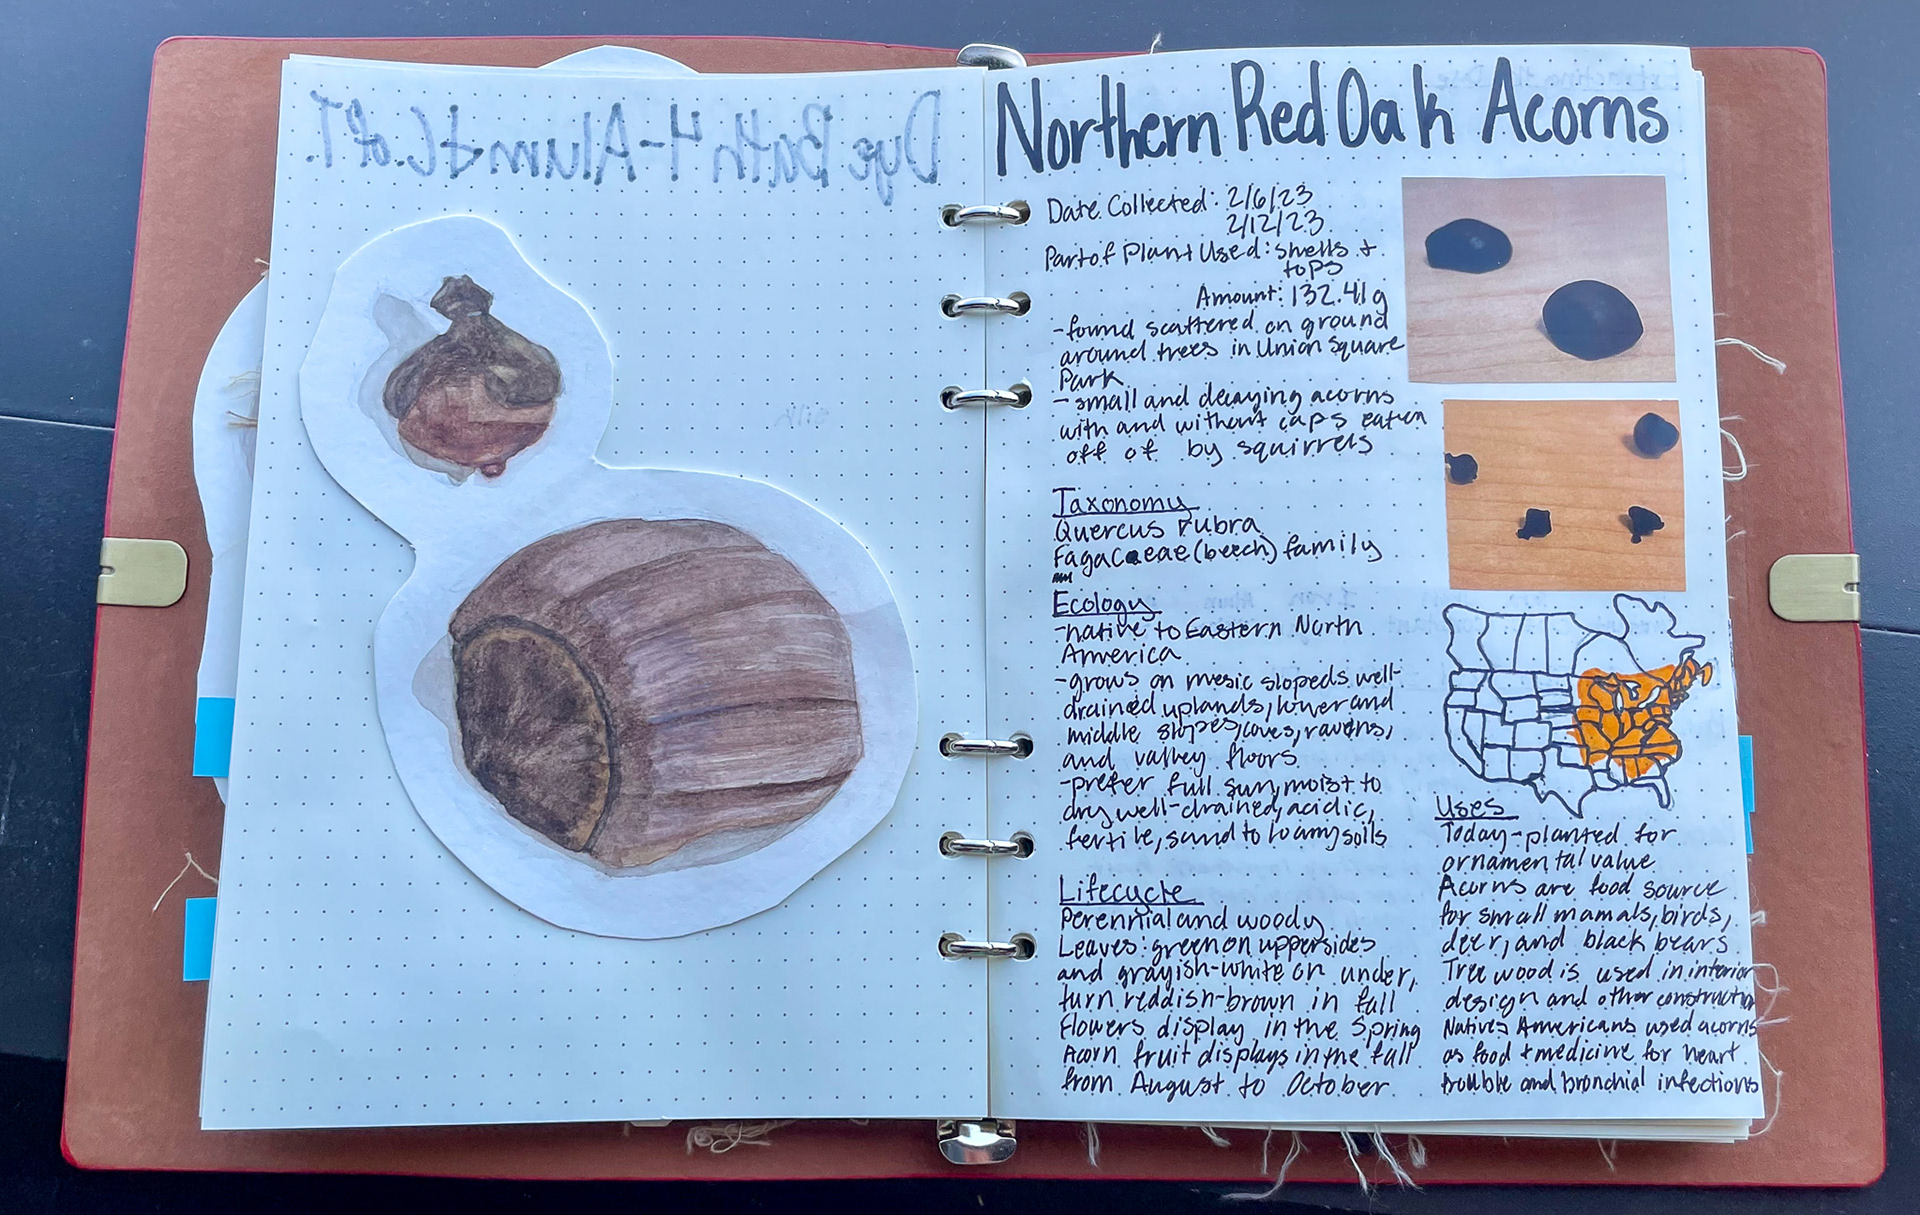 Dye Bath 4-Alum + C. of T.
silk
Northern Red Oak Acorns
Date Collected: 2/6/23
2/12/23
Part of Plant Used: shells +
tops
Amount: 132.41g
-found scattered on ground
around trees in Union Square
Park
- small and decaying acorns
with and without caps eaten
off of by squirrels
Taxonomy
Quercus rubra
Fagacaeae (beech) family
Ecology
-native to Eastern North
America
-grows on mesic slopeds well-
drained uplands, lower and
middle slopes, coves, ravens,
and valley floors
-prefer full sun, moist to
dry well-drained, acidic,
fertile, sand to loamy soils
Lifecycle
Perennial and woody
Leaves: green on uppersides
and grayish-white on under,
turn reddish-brown in fall
Flowers display in the Spring
Acorn fruit displays in the fall
from August to October
Uses
Today-planted for
ornamental value
Acorns are food source
for small mamals, birds,
deer, and black bears
Tree wood is used in interior
design and other construction
Natives Americans used acorns
as food + medicine for heart
trouble and bronchial infections